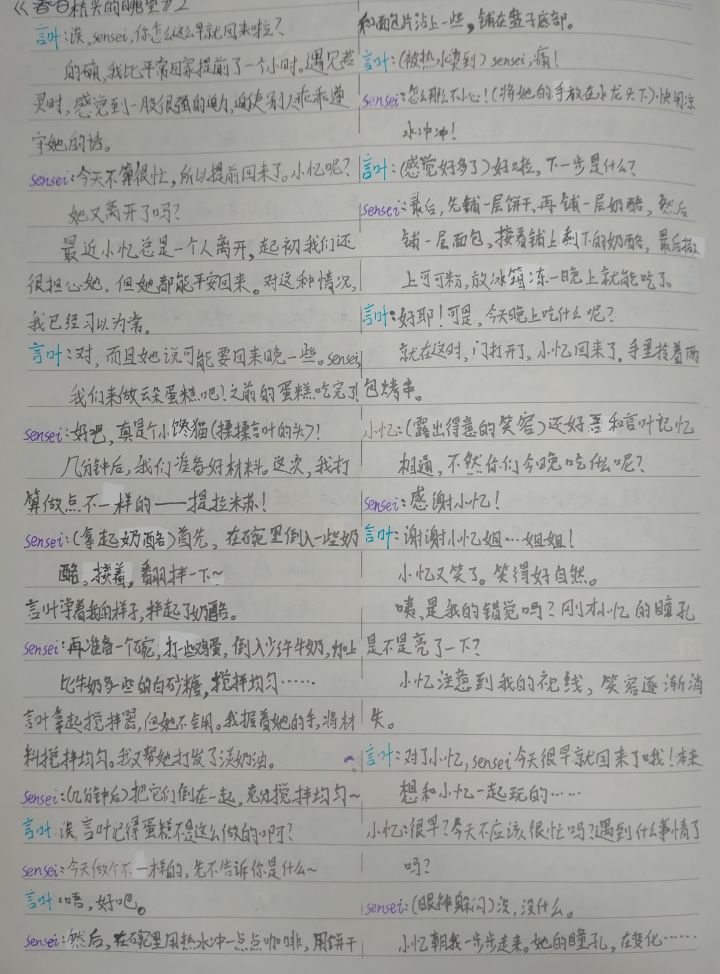 《春日樹失的瞳望》2
言叶:诶,sensei,你怎么这么早就回来啦?
的确,我比平常回家提前了一个小时。遇见若
灵时,感觉到一股很强的魄力,迫使别人乖乖遵
守她的话。
sensei:今天不算很忙,所以提前回来了。小忆呢?
她又离开了吗?
最近小忆总是一个人离开,起初我们还
很担心她,但她都能平安回来。对这种情况,
我已经习以为常。
言叶:对,而且她说可能要回来晚一些。sensei,
我们来做云朵蛋糕吧!之前的蛋糕吃完了!
sensei:好吧,真是个小馋猫(揉揉言叶的头)!
几分钟后,我们准备好材料。这次,我打
算做点不一样的——提拉米苏!
sensei:(拿起奶酪)首先,在碗里倒入一些奶
酪,接着,翻拌一下~
言叶学着我的样子,拌起了奶酪。
sensei:再准备一个碗,打一些鸡蛋,倒入少许牛奶,加上
比牛奶多一些的白砂糖,搅拌均匀……
言叶拿起搅拌器,但她不会用。我握着她的手,将材
料搅拌均匀。我又帮她打发了淡奶油。
sensei:(几分钟后)把它们倒在一起,充分搅拌均匀~
言叶:诶,言叶记得蛋糕不是这么做的啊?
sensei:今天做个不一样的,先不告诉你是什么~
言叶:唔,好吧。
sensei:然后,在碗里用热水冲一点点咖啡,用饼干
和面包片沾上一些,铺在盒子底部。
言叶:(被热水烫到)sensei,痛!
sensei:怎么那么不小心!(将她的手放在水龙头下)快用凉
水冲冲!
言叶:(感觉好多了)好啦,下一步是什么?
sensei:最后,先铺一层饼干,再铺一层奶酪,然后
铺一层面包,接着铺上剩下的奶酪,最后撒
上可可粉,放冰箱冻一晚上就能吃了。
言叶:好耶!可是,今天晚上吃什么呢?
就在这时,门打开了,小忆回来了,手里拎着两
包烤串。
小忆:(露出得意的笑容)还好吾和言叶记忆
相通,不然你们今晚吃什么呢?
sensei:感谢小忆!
言叶:谢谢小忆姐…姐姐!
小忆又笑了。笑得好自然。
咦,是我的错觉吗?刚才小忆的瞳孔
是不是亮了一下?
小忆注意到我的视线,笑容逐渐消
失。
言叶:对了小忆,sensei今天很早就回来了哦!本来
想和小忆一起玩的……
小忆:很早?今天不应该很忙吗?遇到什么事情了
吗?
sensei:(眼神躲闪)没,没什么。
小忆朝我一步步走来。她的瞳孔,在变化……